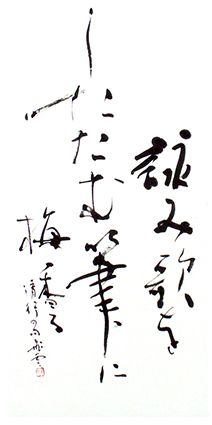 詠み歌を
したたむ筆に
梅香る